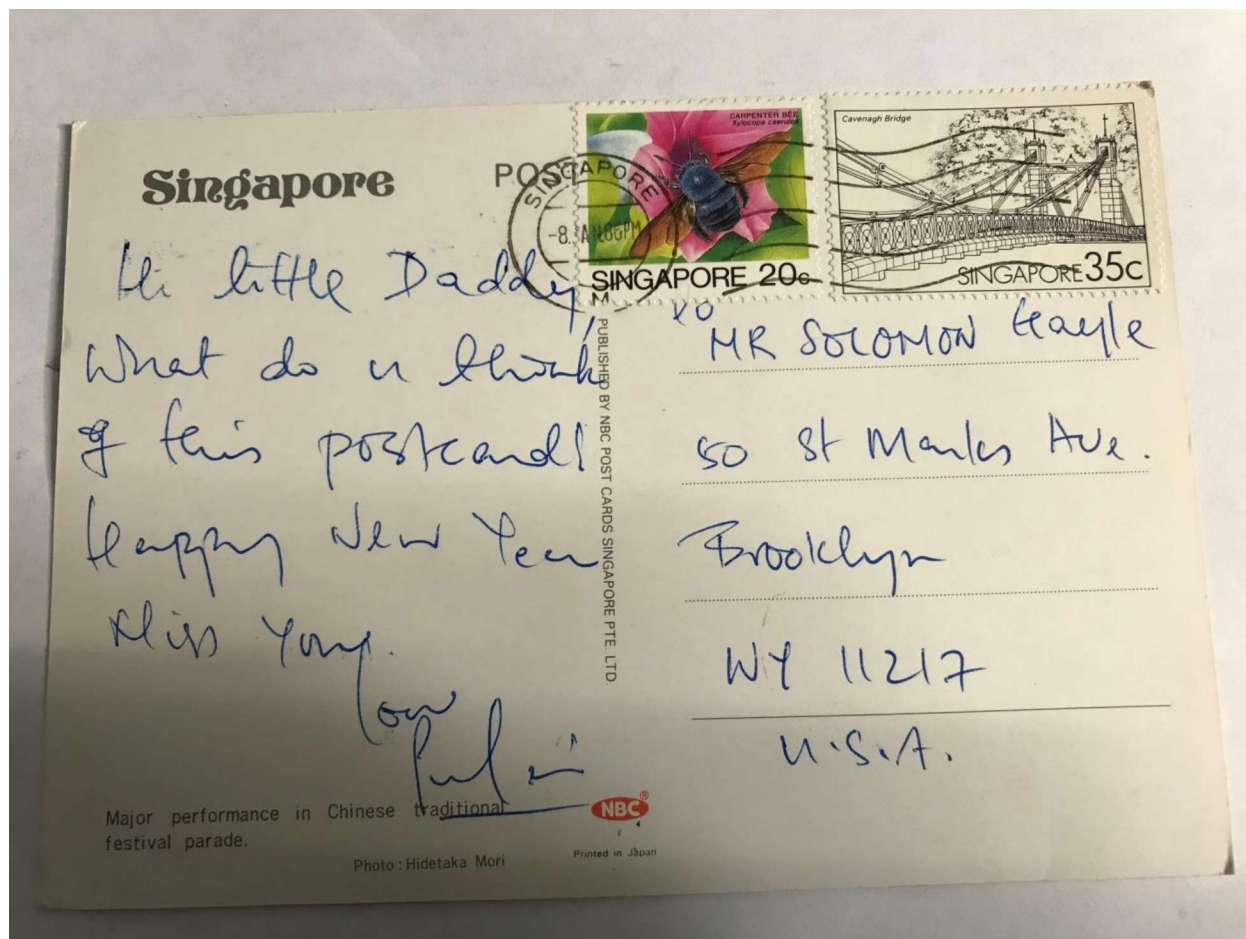 Singapore
POST
SINGAPORE
-8.JAN.86PM
CARPENTER BEE
Xylocopa caerulea
SINGAPORE 20c
Cavenagh Bridge
SINGAPORE 35c
Hi little Daddy,
What do u think
of this postcard!
Happy New Year
Miss You.
Love
PUBLISHED BY NBC POST CARDS SINGAPORE PTE. LTD.
MR SOLOMON Hayle
50 St Marks Ave.
Brooklyn
NY 11217
U.S.A.
Major performance in Chinese traditional
festival parade.
Photo : Hidetaka Mori
NBC®
Printed in Japan